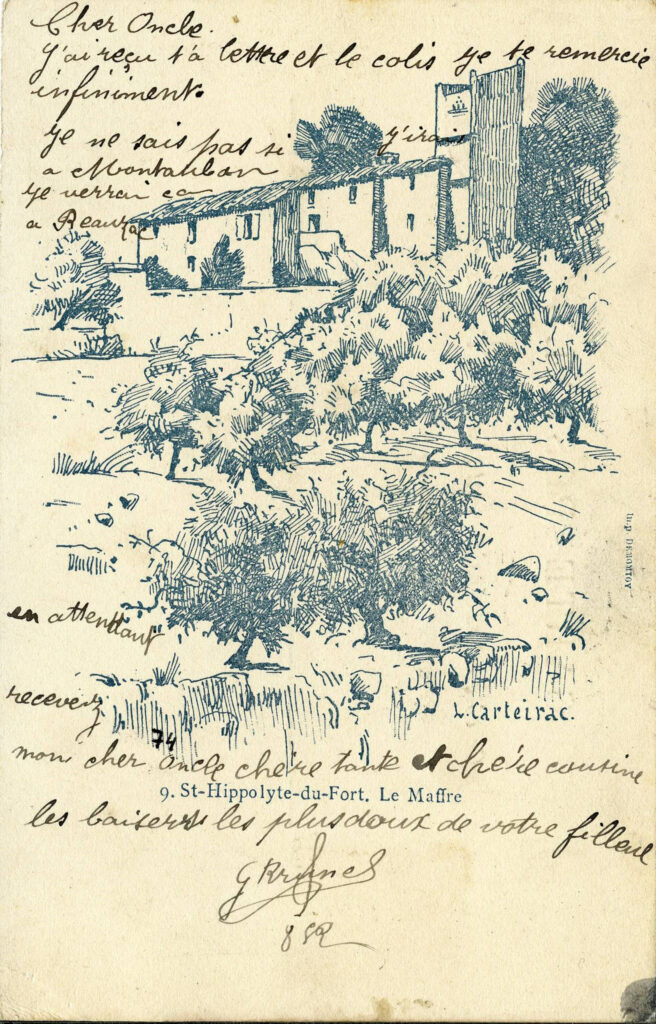 Cher Oncle.
J'ai reçu ta lettre et le colis je te remercie
infiniment.
je ne sais pas si j'irais
a Montauban
je verrai ça
a Reauzac
en attendant
recevez
74
mon cher Oncle chère tante et chère cousine
9. St-Hippolyte-du-Fort. Le Maffre
les baisers les plus doux de votre filleul
L. Carteirac.
Imp. DEMONTOY